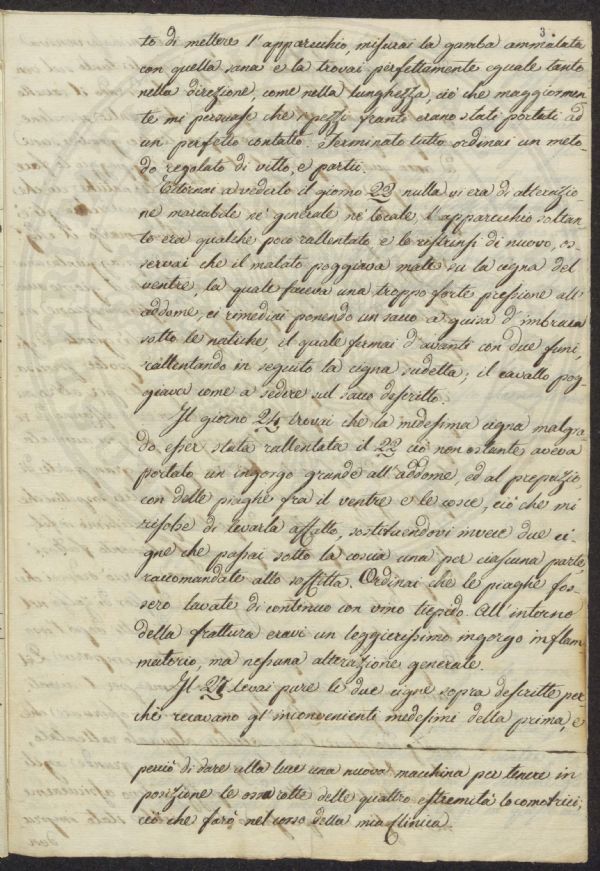 3
to di mettere l'apparecchio, misurai la gamba ammalata
con quella sana e la trovai perfettamente eguale tanto
nella direzione, come nella lunghezza, ciò che maggiormen-
te mi persuase che i pezzi franti erano stati portati ad
un perfetto contatto. Terminato tutto ordinai un meto-
do regolato di vitto, e partii.
Ritornai a vederlo il giorno 22 nulla vi era di alterazio-
ne marcabile nè generale nè locale, l'apparecchio soltan-
to era qualche poco rallentato e lo ristrinsi di nuovo, os-
servai che il malato poggiava molto su la cigna del
ventre, la quale faceva una troppo forte pressione all'
addome, ci rimediai ponendo un sacco a guisa d'imbraca
sotto le natiche, il quale fermai d'avanti con due funi,
rallentando in seguito la cigna sudetta; il cavallo pog-
giava come a sedere sul sacco descritto.
Il giorno 24 trovai che la medesima cigna malgra-
do esser stata rallentata il 22 ciò non ostante aveva
portato un ingorgo grande all'addome, ed al prepuzio
con delle piaghe fra il ventre e le cosce, ciò che mi
risolse di levarla affatto, sostituendovi invece due ci-
gne che passai sotto la coscia una per ciascuna parte,
raccomandate allo soffitta. Ordinai che le piaghe fos-
sero lavate di continuo con vino tiepido. All'interno
della frattura eravi un leggierissimo ingorgo inflam-
matorio, ma nessuna alterazione generale.
Il 27 levai pure le due cigne sopra descritte per-
chè recavano gl'inconvenienti medesimi della prima, e
perciò di dare alla luce una nuova macchina per tenere in
posizione le ossa rotte delle quattro estremità locomotrici,
ciò che farò nel corso della mia Clinica.